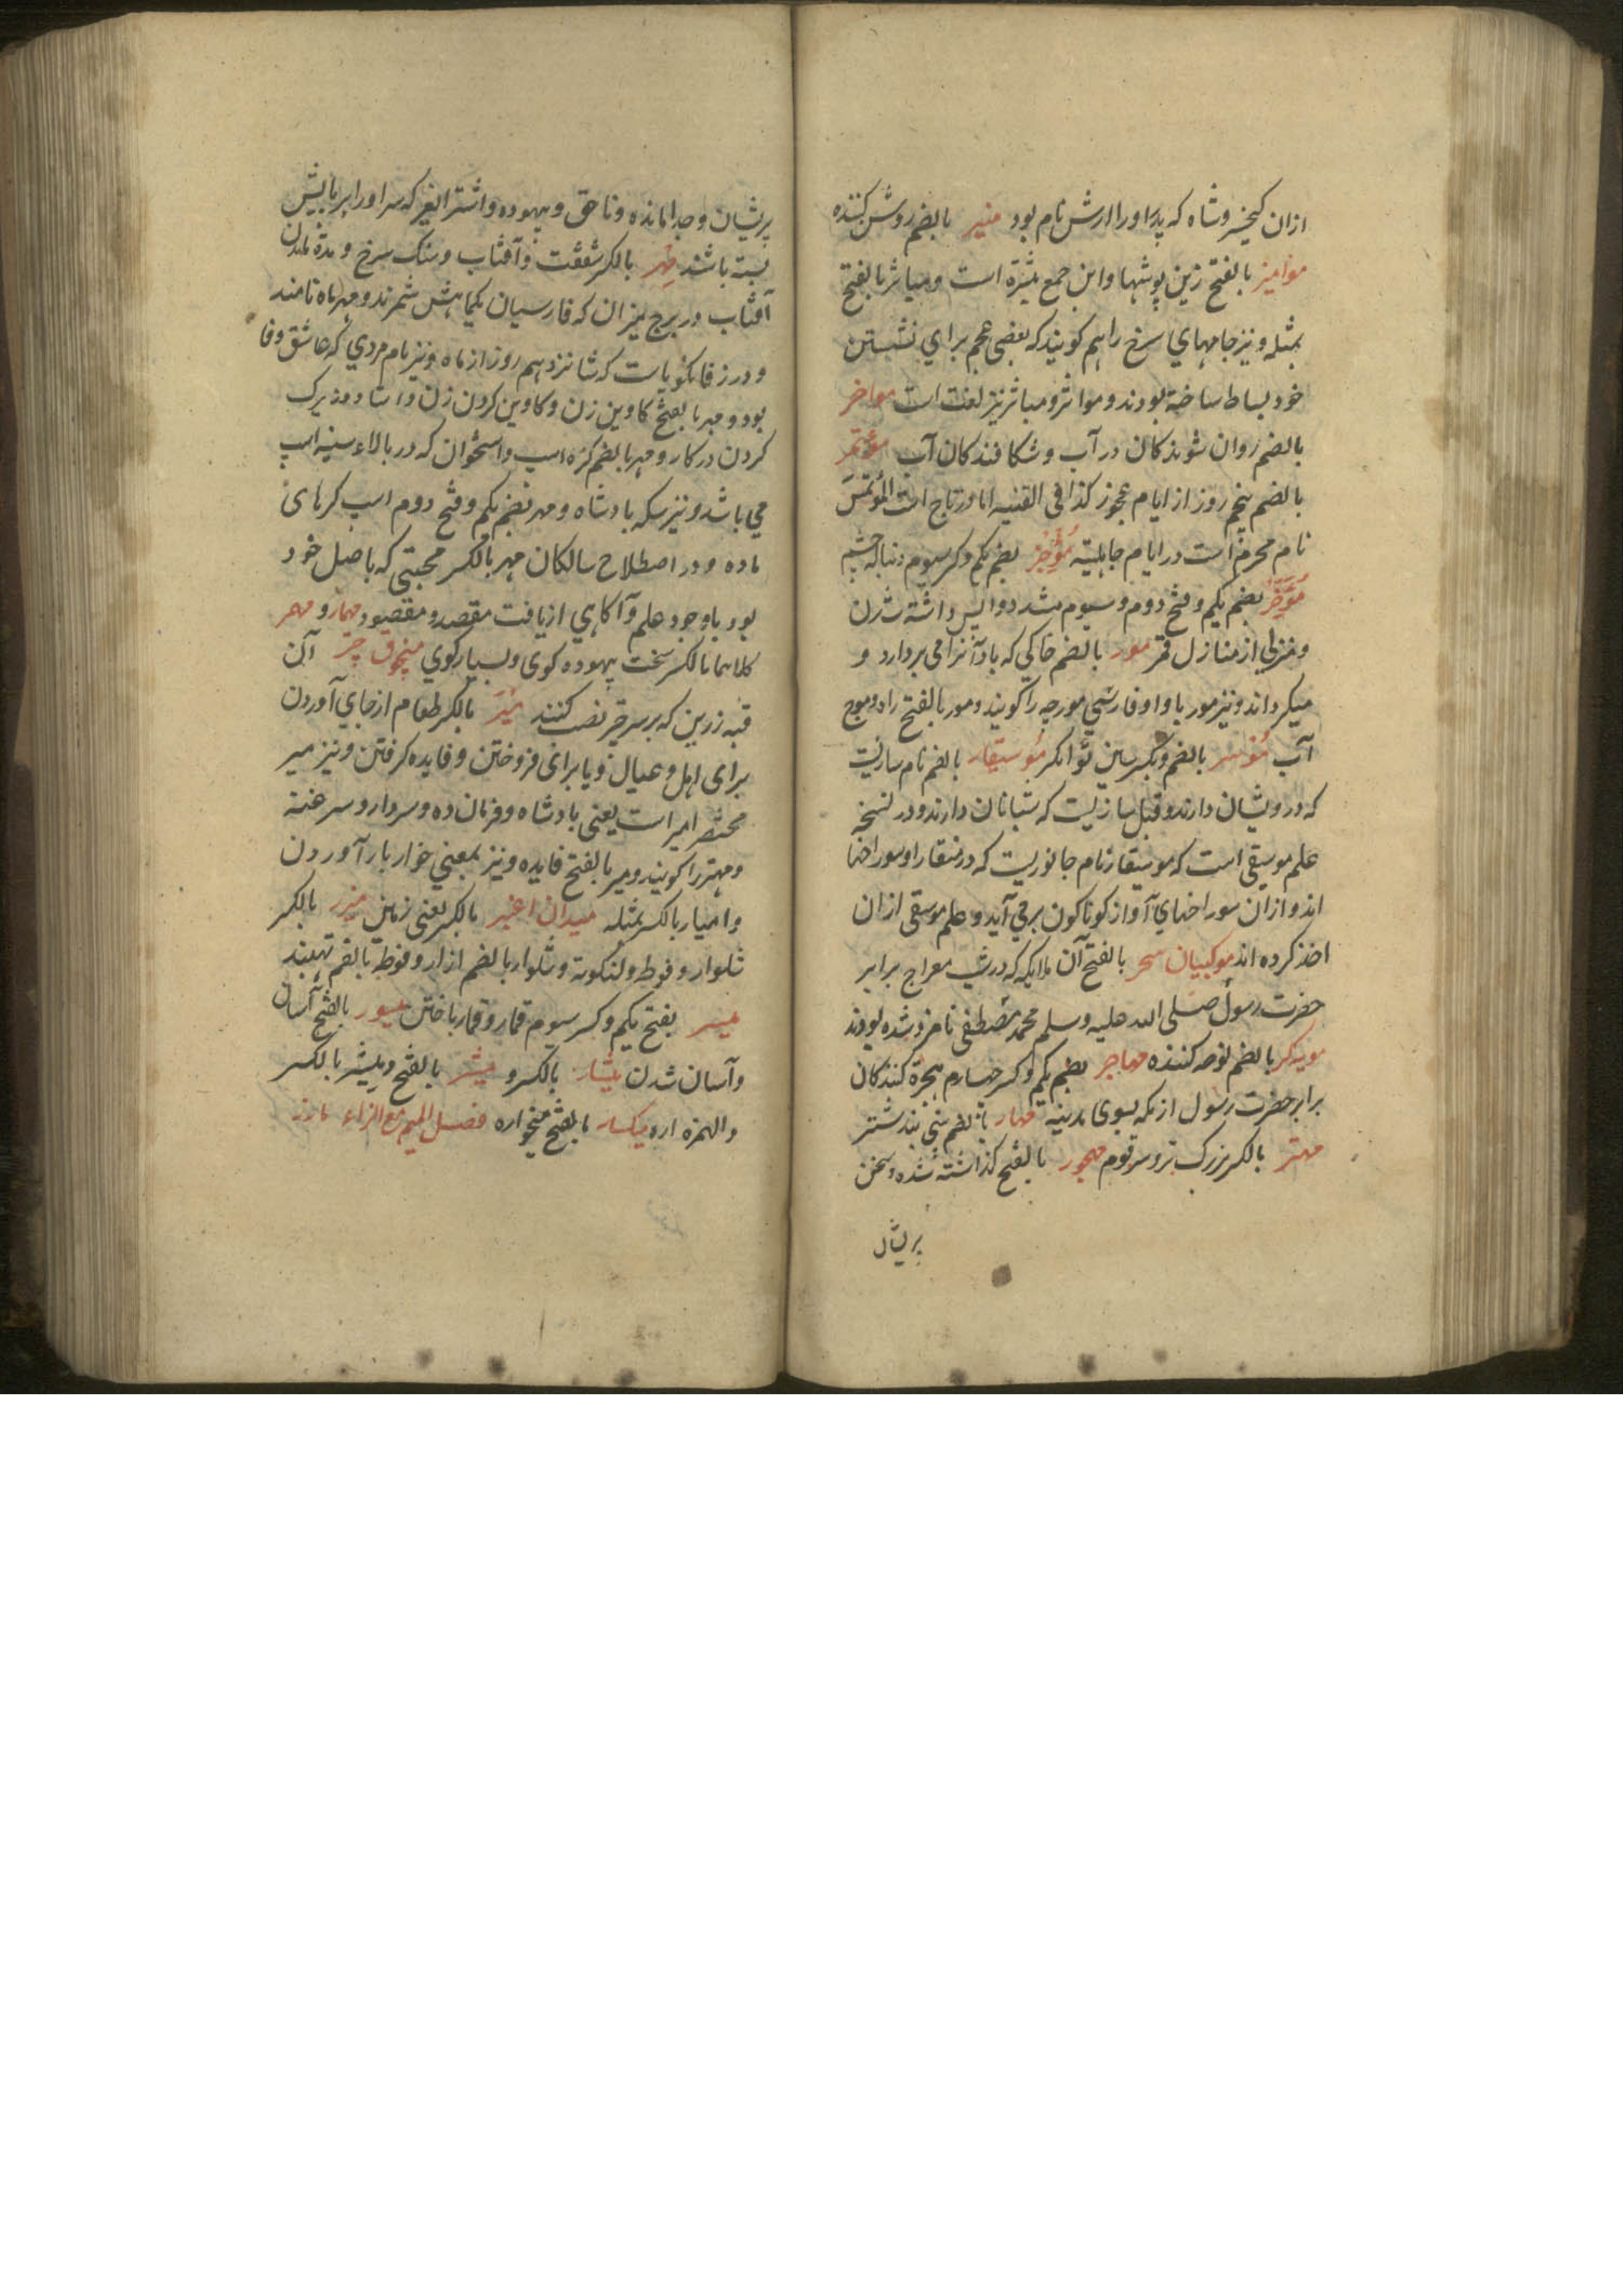 ازان کیخسرو شاه که پدر او را ارش نام بود منیر بالضم روشن کننده
بالفتح زین پوشها و این جمع میثرة است و میاثر بالفتح
بمثله و نیز جامهای سرخ را هم کویند که بعضی عجم برای نشستن
خود بساط ساخته بودند و مواثر و میاثر نیز لغت است مواخر
بالضم روان شوندکان در آب و شکافندکان آب مؤتمر
بالضم پنجم روز از ایام عجوز کذا فی القنیه اما در تاج است المؤتمر
نام محرم است در ایام جاهلیته مُؤْخِر بضم یکم و کسر سیوم دنباله چشم
مُؤَخَّر بضم یکم و فتح دوم و سیوم مشدد واپس داشته شدن
و منزلی از منازل قمر مور بالضم خاکی که باد آنرا می بردارد و
میکرداند و نیز مور با واو فارسی مورچه را کویند و مور بالفتح راه و موج
آب موسر بالضم و بکسر سین توانکر موسیقار بالضم نام سازیست
که درویشان دارند و قیل سازیست که شبانان دارند و در نسخه
علم موسیقی است که موسیقار نام جانوریست که در منقار او سوراخها
اند و ازان سوراخهای آواز کوناکون برمی آید و علم موسیقی ازان
اخذ کرده اند موکبیان سحر بالفتح آن ملایکه که در شب معراج برابر
حضرت رسول صلی الله علیه وسلم محمد مصطفی نامزد شده بودند
مویه کر بالضم نوحه کننده مهاجر بضم یکم و کسر چهارم هجرة کنندکان
برابر حضرت رسول از مکه بسوی مدینه مهار بالضم بینی بند شتر
مهتر بالکسر بزرک تر و سر قوم مهجور بالفتح کذاشته شده و سخن
پریشان
پریشان و جدا مانده و ناحق و بیهوده و اشتر انیز که سر او را بر پایش
بسته باشند مهر بالکسر شفقت و آفتاب و سنک سرخ و مدة ماندن
آفتاب در برج میزان که فارسیان یکماهش شمرند و مهرماه نامند
و در زفانکویاست که شانزدهم روز از ماه و نیز نام مردی که عاشق وفا
بود و مهر بالفتح کاوین زن و کاوین کردن زن و استاد و زیرک
کردن در کار و مهر بالضم کره اسپ و استخوان که در بالاء سینه اسپ
می باشد و نیز سکه بادشاه و مهر بضم یکم و فتح دوم اسپ کرهای
ماده و در اصطلاح سالکان مهر بالکسر محبتی که باصل خود
بود باوجود علم و آکاهی از یافت مقصد و مقصود مهمار و مهمر
کلاهما بالکسر سخت بیهوده کوی و بسیار کوی منجوق چتر آن
قبه زرین که بر سر چتر نصب کنند میر بالکسر طعام از جای آوردن
برای اهل و عیال و یا برای فروختن و فایده کرفتن و نیز میر
مختصر امیر است یعنی بادشاه و فرمان ده و سردار و سرهنک
و مهتر را کویند و میر بالفتح فایده و نیز بمعنی خوار بار آوردن
و امیار بالکسر بمثله میدان اغبر بالکسر یعنی زمین میزر بالکسر
شلوار و فوطه و لنکوته و شلوار بالضم ازار و فوطه بالضم تهبند
میسر بفتح یکم و کسر سیوم قمار و قمار باختن میسور بالفتح آسان
و آسان شدن میشار بالکسر و میشر بالفتح و میشر بالکسر
و الهمزه اره میکسار بالفتح میخواره فصل المیم مع الزاء مارز